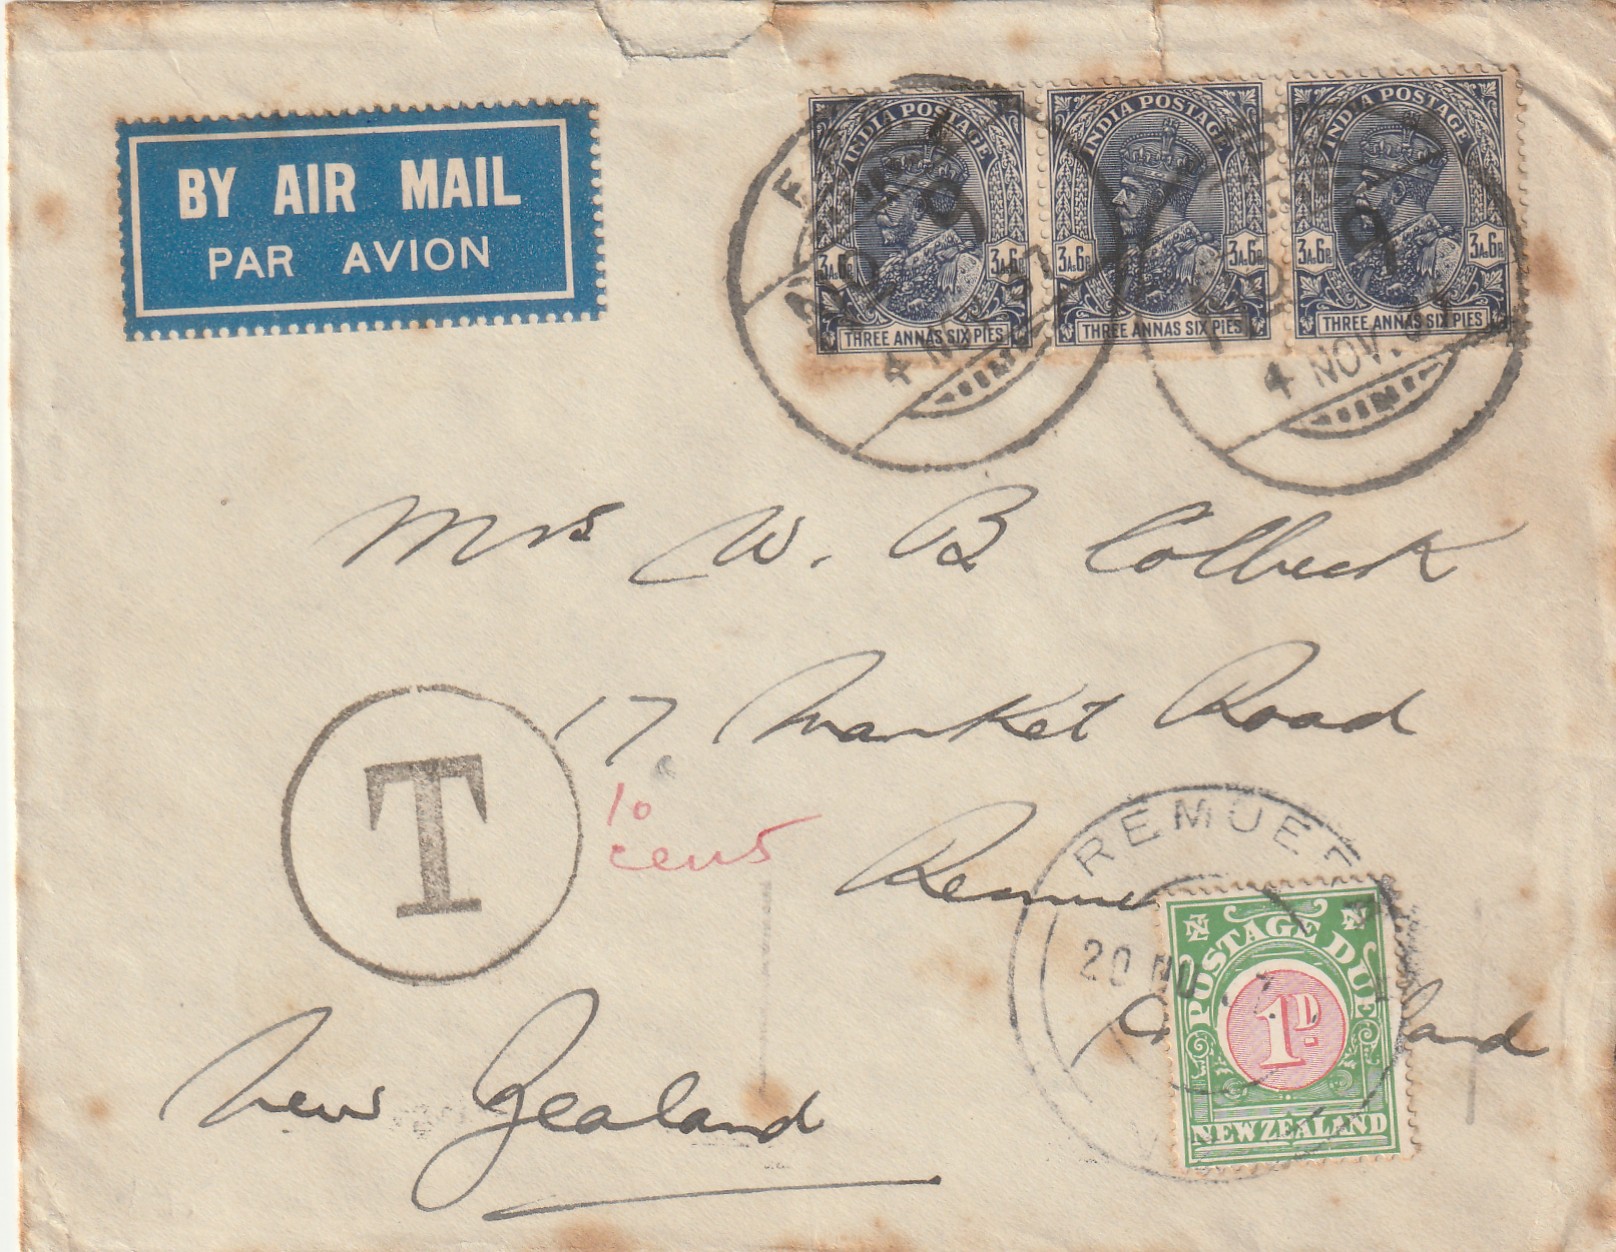 BY AIR MAIL
PAR AVION
INDIA POSTAGE
3A.6P. 3A.6P.
THREE ANNAS SIX PIES
INDIA POSTAGE
3A.6P. 3A.6P.
THREE ANNAS SIX PIES
INDIA POSTAGE
3A.6P. 3A.6P.
THREE ANNAS SIX PIES
4 NOV. 37
4 NOV.
Mrs W. B Colbeck
17 Market Road
T
10
cents
REMUERA
20 NO 37
NZ NZ
POSTAGE DUE
1D.
NEW ZEALAND
New Zealand